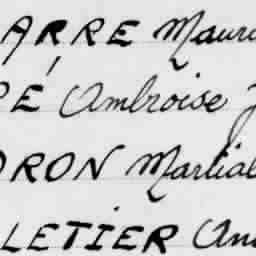 ARRE Mauri
PÉ Ambroise J
DRON Martial
LETIER And